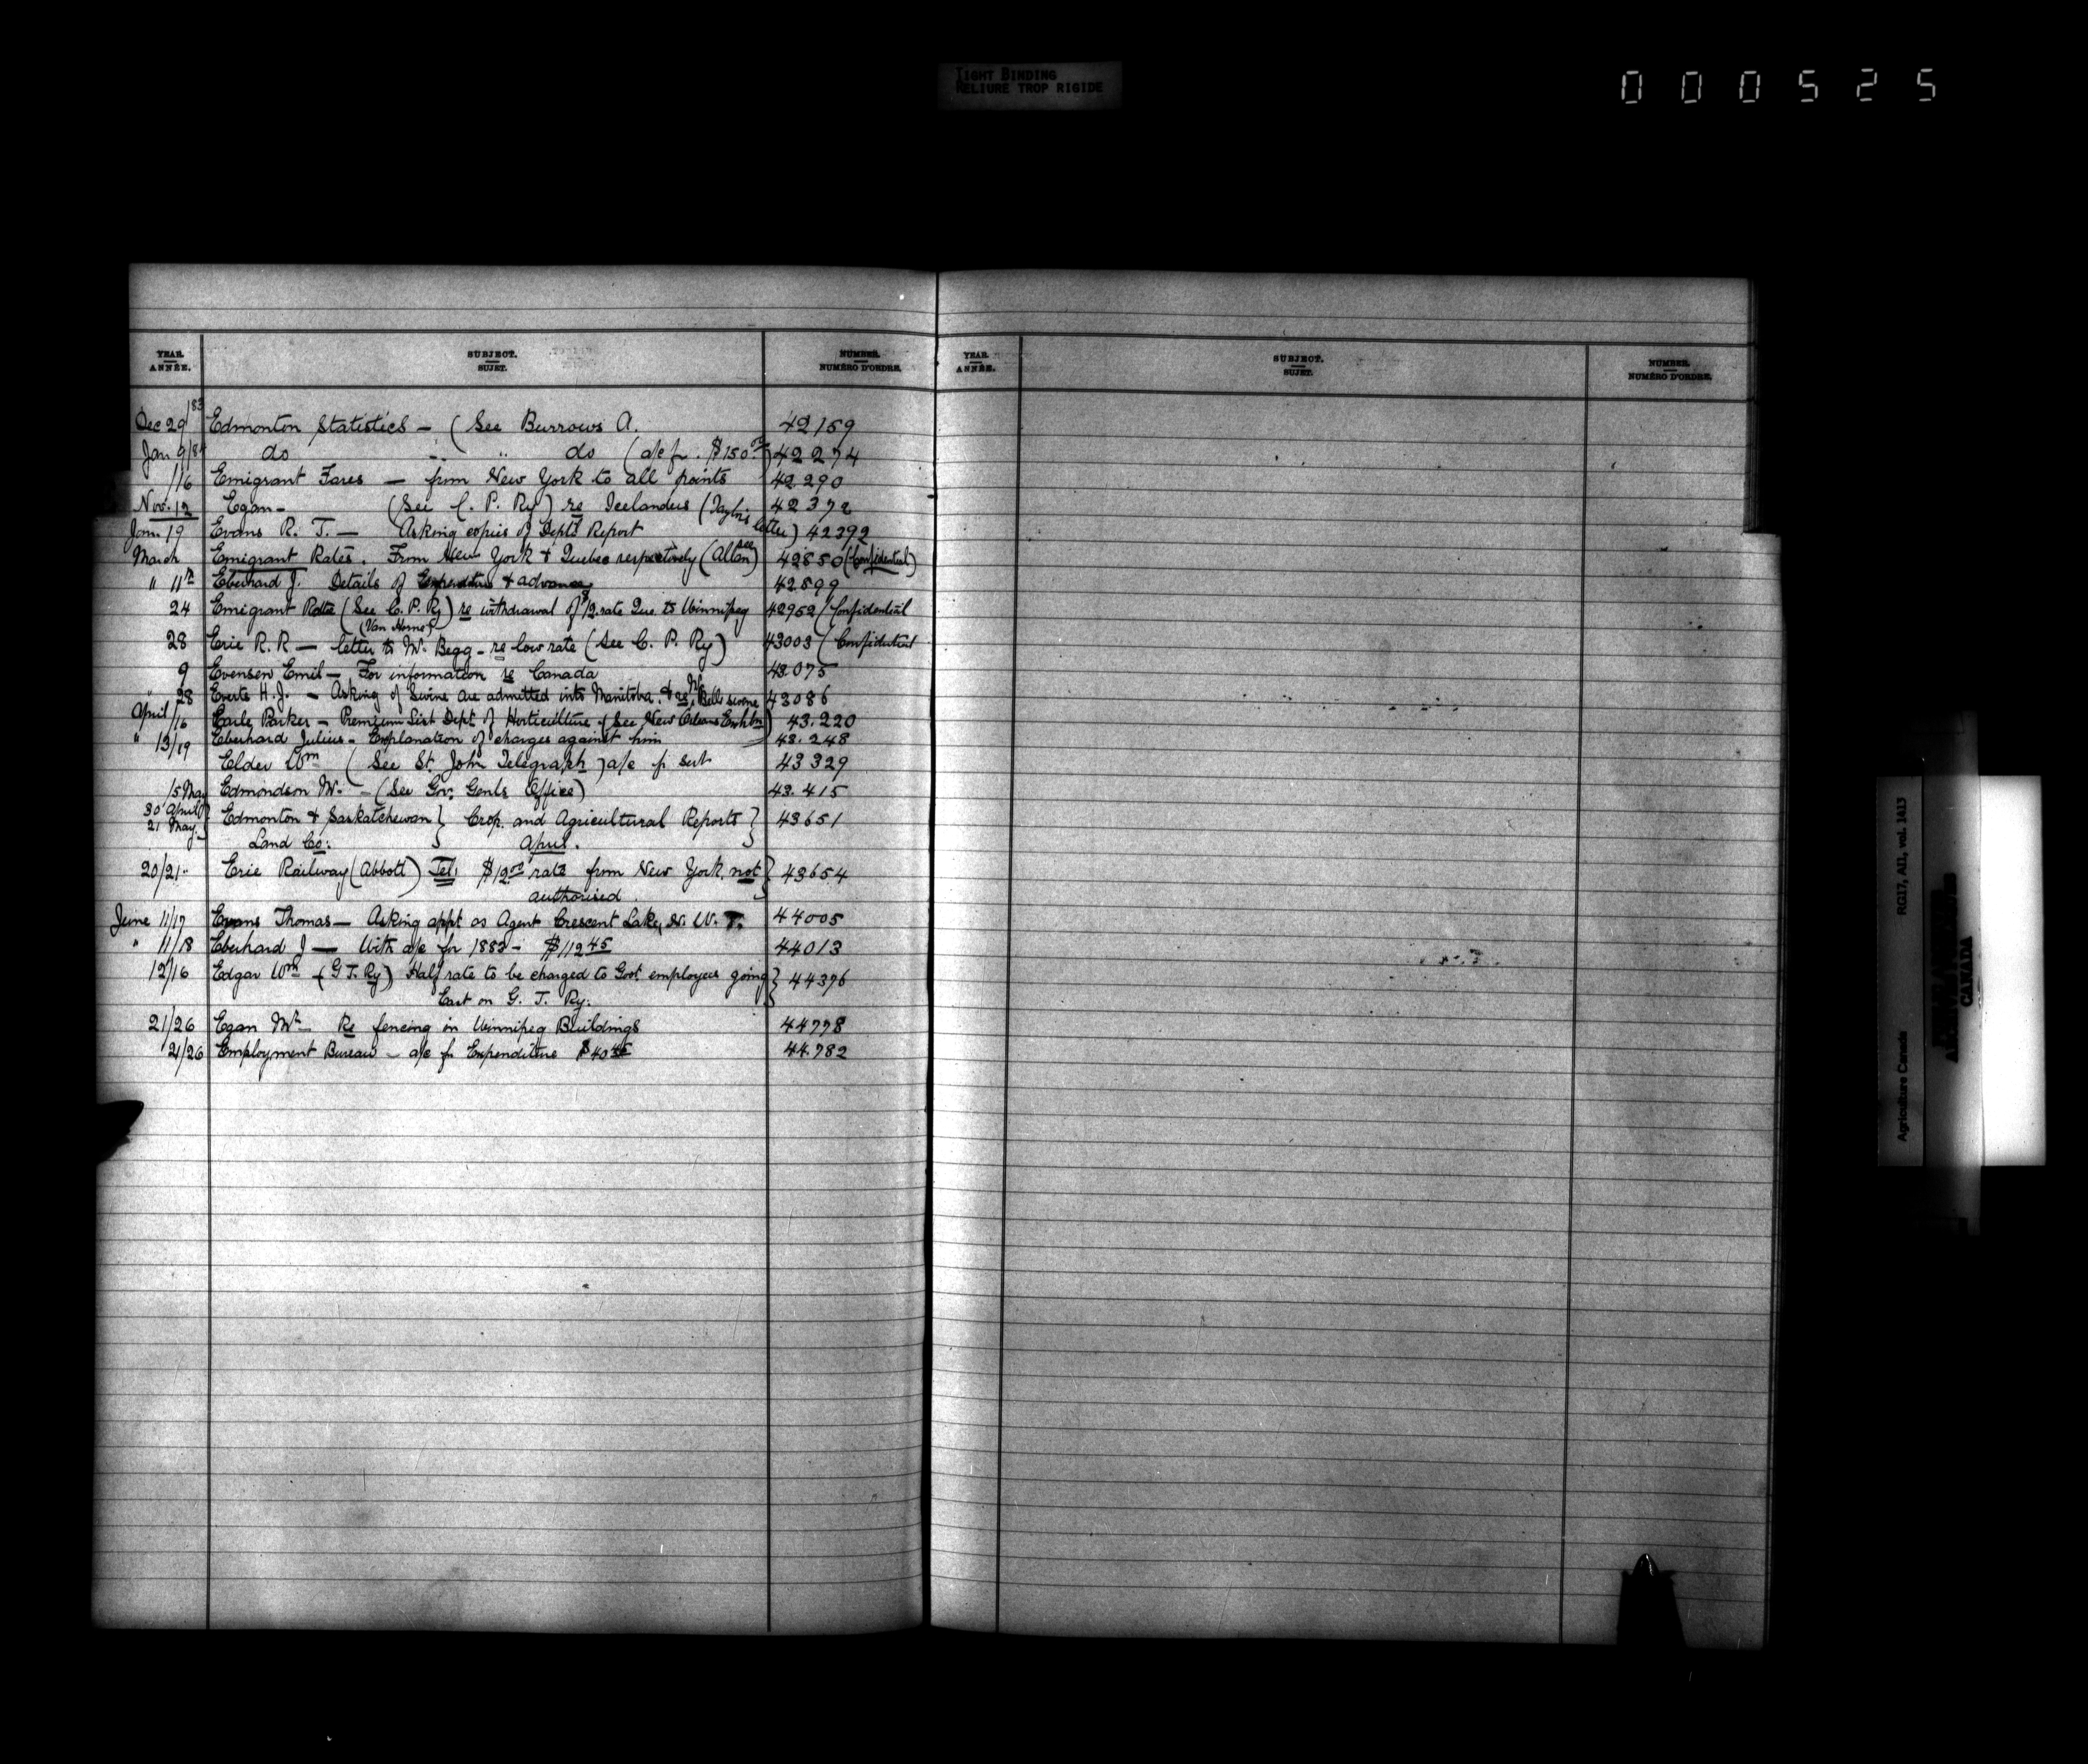 TIGHT BINDING
RELIURE TROP RIGIDE
000525
YEAR. SUBJECT. NUMBER.
ANNÉE. SUJET. NUMÉRO D'ORDRE.
Dec 29/83 Edmonton Statistics — (See Burrows A. 42159
Jan 9/84 do " do (a/c fr. $150.00) 42274
/16 Emigrant Fares — from New York to all points 42290
Nov. 12 Egan — (See C. P. Ry) re Icelanders (Taylor's letter) 42372
Jan. 19 Evans R. J. — Asking copies of Dept's Report 42392
March Emigrant Rates. From New York & Quebec respectively (see Allan) 42850 (Confidential)
" 11th Eberhard J. Details of Expenditure & advances 42899
24 Emigrant Rate (See C. P. Ry) re withdrawal of 1/2 rate Que. to Winnipeg 42952 (Confidential
(Van Horne)
28 Erie R. R — letter to Mr. Begg — re low rate (See C. P. Ry) 43003 (Confidential
9 Evensen Emil — For information re Canada 43075
" 28 Everts H. J. — Asking if Swine are admitted into Manitoba. & re Mr Bell's swine 43086
April /16 Earle Parker — Premium List Dept. of Horticulture (See New Orleans Exhbn) 43.220
" 13/19 Eberhard Julius — Explanation of charges against him 43.248
Elder Wm (See St. John Telegraph) a/c fr sub 43329
/5 May Edmondson Mr. — (See Gov. Genls Office) 43.415
30 April
21 May. Edmonton & Saskatchewan } Crop. and Agricultural Reports } 43651
Land Co: } April.
20/21 " Erie Railway (Abbott) Tel: $12.00 rate from New York not } 43654
authorised.
June 11/17 Evans Thomas — Asking appt as Agent Crescent Lake, N. W. T. 44005
" 11/18 Eberhard J — With a/c for 1882 — $112.45 44013
12/16 Edgar Wm (G T. Ry) Half rate to be charged to Govt. employees going } 44376
East on G. T. Ry.
21/26 Egan Mr — Re fencing in Winnipeg Buildings 44778
21/26 Employment Bureau — a/c for Expenditure $40.45 44.782
YEAR. SUBJECT. NUMBER.
ANNÉE. SUJET. NUMÉRO D'ORDRE.
Agriculture Canada RG17, AII, vol. 1413
CANADA